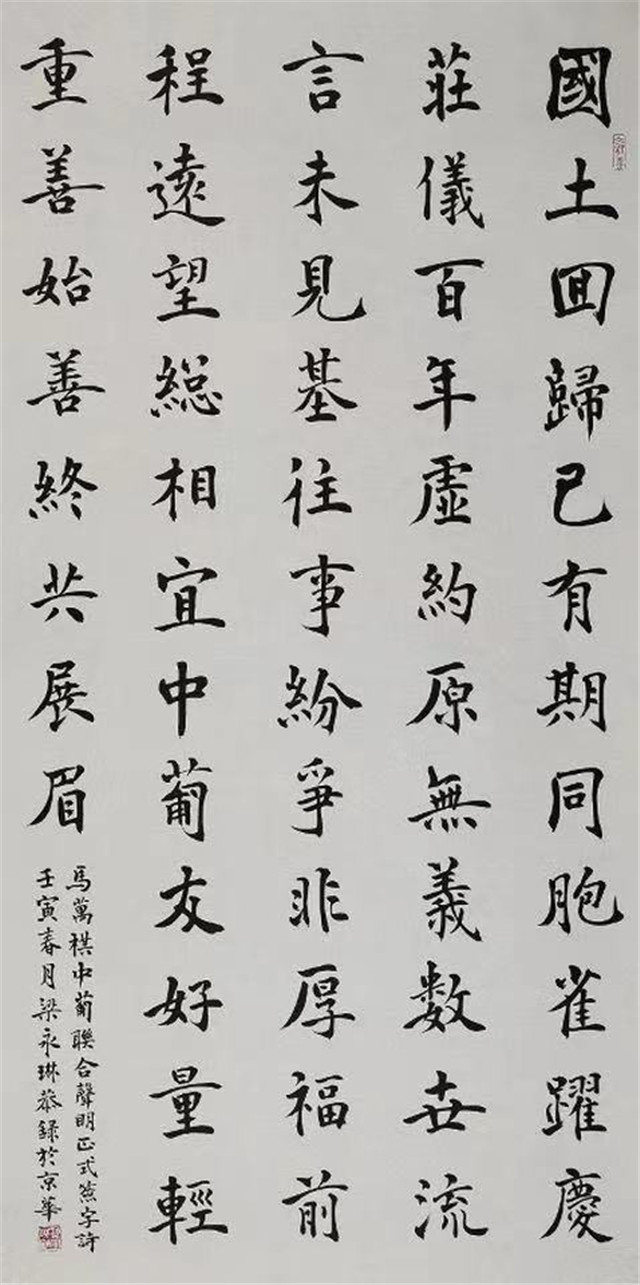 國土回歸已有期同胞雀躍慶
莊儀百年虛約原無義數世流
言未見基往事紛爭非厚福前
程遠望總相宜中葡友好量輕
重善始善終共展眉
馬萬祺中葡聯合聲明正式簽字詩
壬寅春月梁永琳恭錄於京華